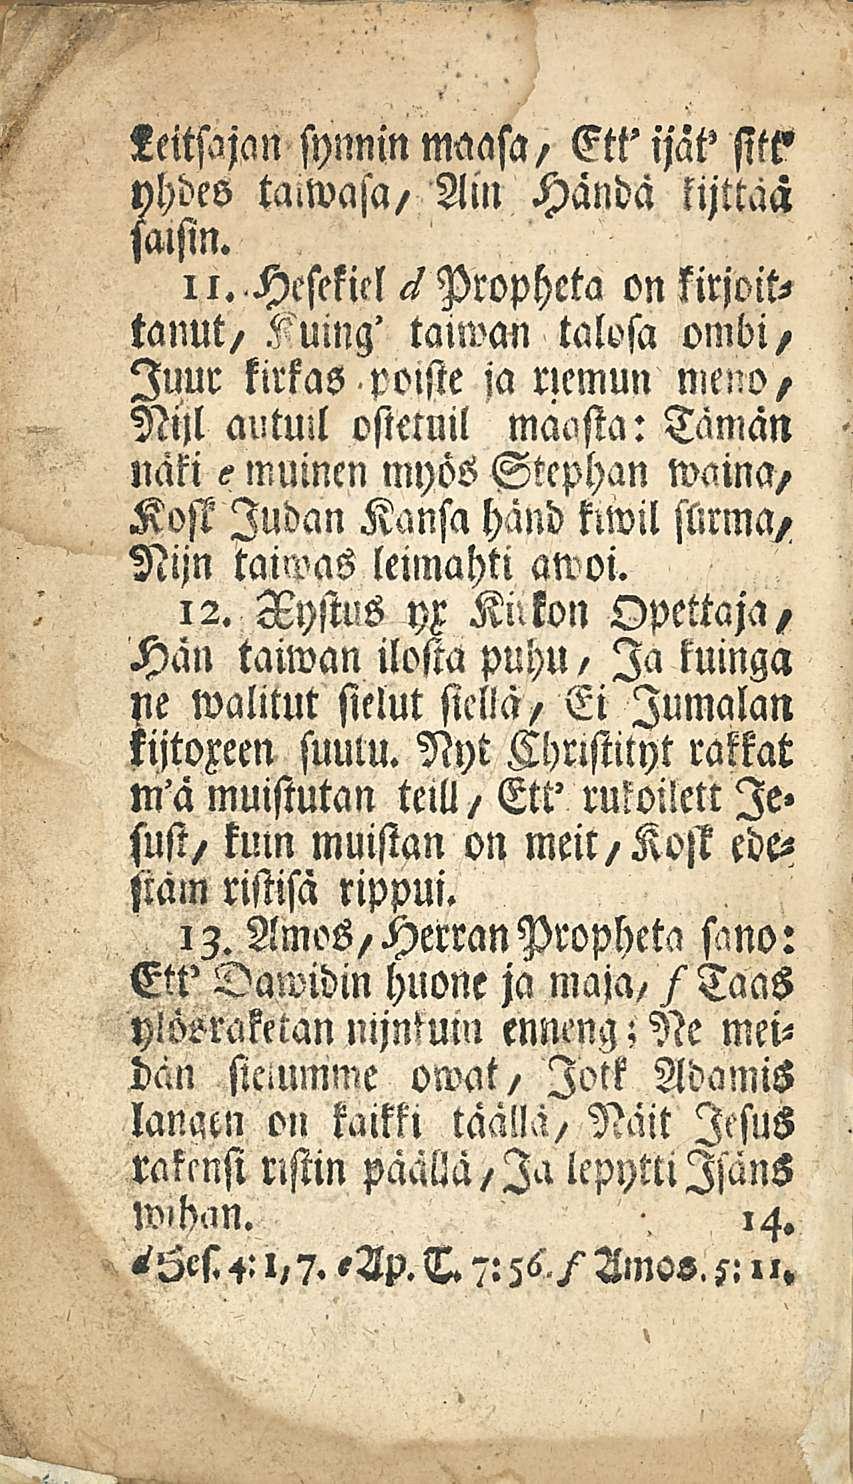 Leitsajan synnin maasa, Ett' ijät' sitt'
yhdes taiwasa, Ain Händä kijttää
saisin.
11. Hesekiel d Propheta on kirjoit-
tanut, Kuing' taiwan talosa ombi,
Juur kirkas poiste ja riemun meno,
Nijl autuil ostetuil maasta: Tämän
näki e muinen myös Stephan waina,
Kosk Judan Kansa händ kiwil surma,
Nijn taiwas leimahti awoi.
12. Xystus yx Kirkon Opettaja,
Hän taiwan ilosta puhu, Ja kuinga
ne walitut sielut siellä, Ei Jumalan
kijtoxeen suutu. Nyt Christityt rakkat
m'ä muistutan teill, Ett' rukoilett Je-
sust, kuin muistan on meit, Kosk ede-
stäm ristisä rippui.
13. Amos, Herran Propheta sano:
Ett' Dawidin huone ja maja, f Taas
ylösraketan nijnkuin enneng; Ne mei-
dän sielumme owat, Jotk Adamis
langen on kaikki täällä, Näit Jesus
rakensi ristin päällä, Ja lepytti Isäns
wihan. 14.
d Hes. 4: 1, 7. e Ap. T. 7: 56. f Amos. 5: 11.